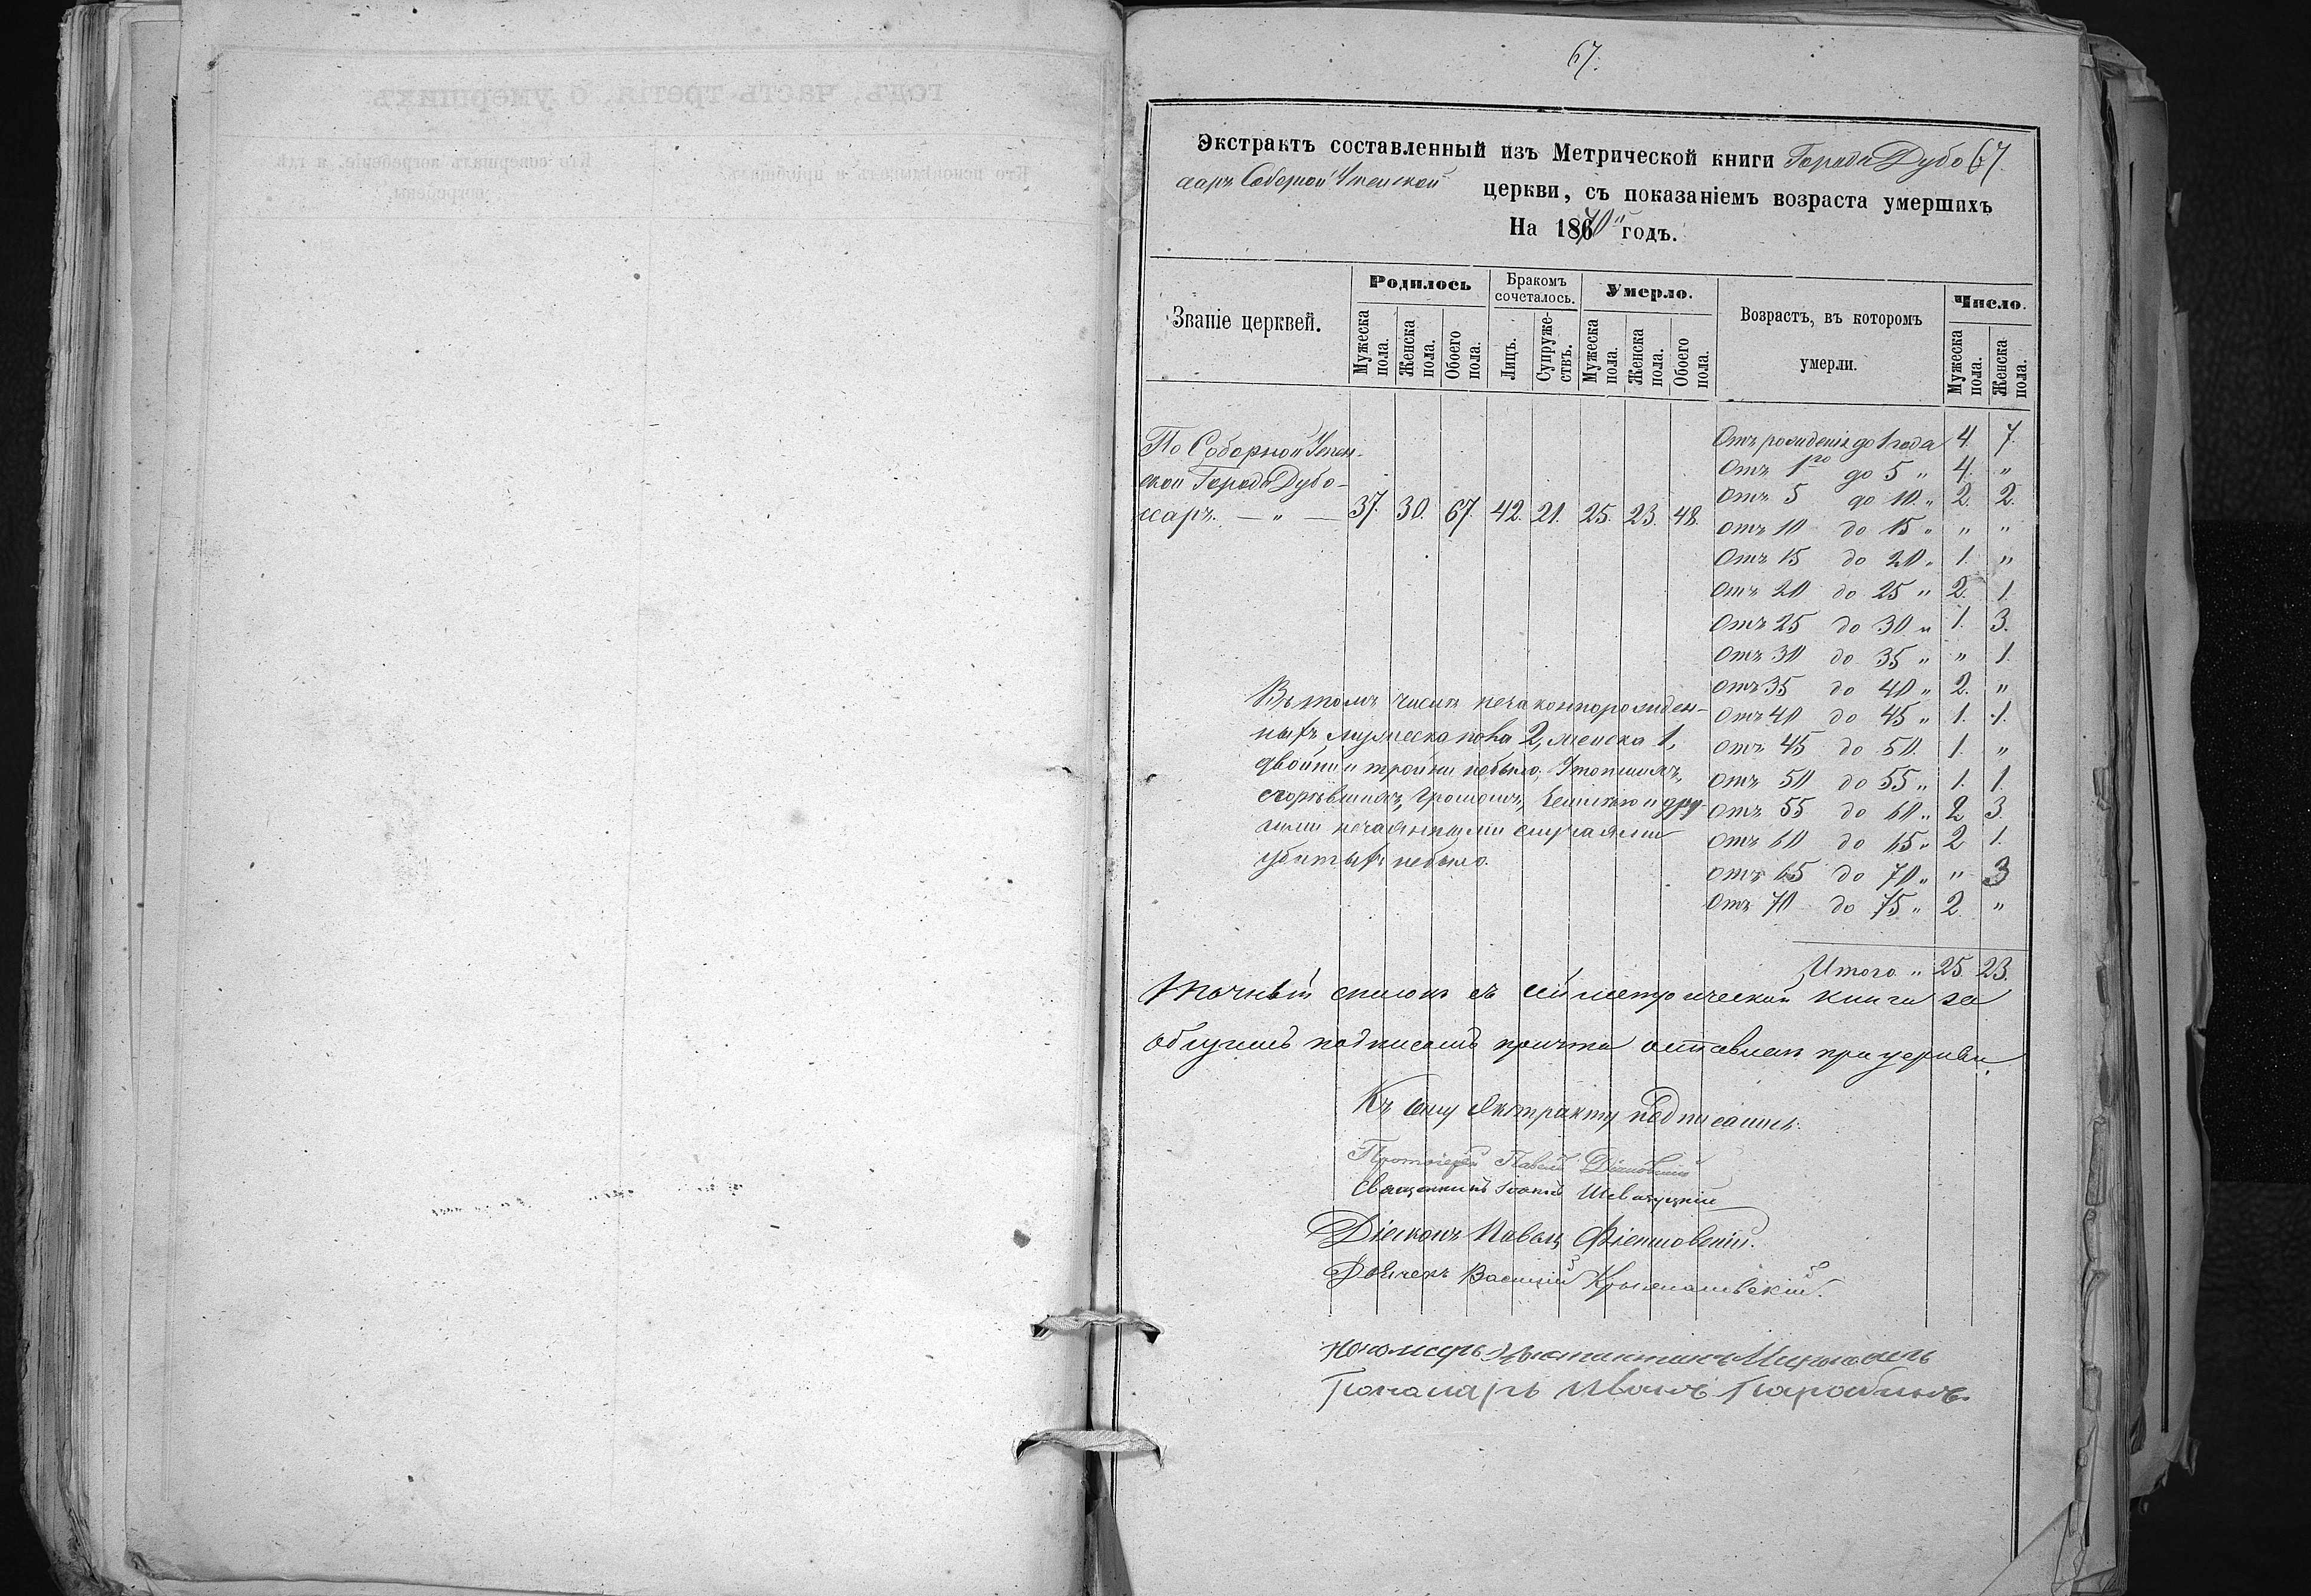 годъ, часть третія, о умершихъ
Кто исповѣдывалъ и пріобщалъ.
Кто совершалъ погребеніе, и гдѣ погребены.
67.
Экстрактъ составленный изъ Метрической книги Города Дубо
67.
саръ Соборной Успенской церкви, съ показаніемъ возраста умершихъ
На 1870" годъ.
Званіе церквей.
Родилось
Мужеска пола.
Женска пола.
Обоего пола.
Бракомъ сочеталось.
Лицъ.
Супружествъ.
Умерло.
Мужеска пола.
Женска пола.
Обоего пола.
Возрастъ, въ которомъ
умерли.
Число.
Мужеска пола.
Женска пола.
По Соборной Успен-
ской Города Дубо-
ссаръ. — " — 37. 30. 67. 42. 21. 25. 23. 48.
Отъ рожденія до 1 года 4. 7.
Отъ 1го до 5 " 4. "
Отъ 5 до 10. " 2. 2.
Отъ 10 до 15 " " "
Отъ 15 до 20 " 1. "
Отъ 20 до 25 " 2. 1.
Отъ 25 до 30 " 1. 3.
Отъ 30 до 35 " " 1.
Отъ 35 до 40 " 2. "
Отъ 40 до 45 " 1. 1.
Отъ 45 до 50. 1. "
Отъ 50 до 55 " 1. 1.
Отъ 55 до 60 " 2 3.
Отъ 60 до 65 " 2 1.
Отъ 65 до 70 " " 3
Отъ 70 до 75 " 2 "
Итого " 25 23.
Въ томъ числѣ незаконнорожден-
ныхъ мужеска пола 2, женска 1,
двойни и тройни небыло, Утопшихъ,
сгорѣвшихъ, громомъ, и дру-
гими нечаянными случаями
убитыхъ небыло.
Точный списокъ съ сей метрической книги за
общимъ подписомъ причта оставленъ при церкви.
Къ сему Экстракту подписались:
Протоіерей Павелъ
Священникъ Іоаннъ
Діаконъ Павелъ
Дьячекъ Василій Крыжановскій.
Пономарь Иванъ